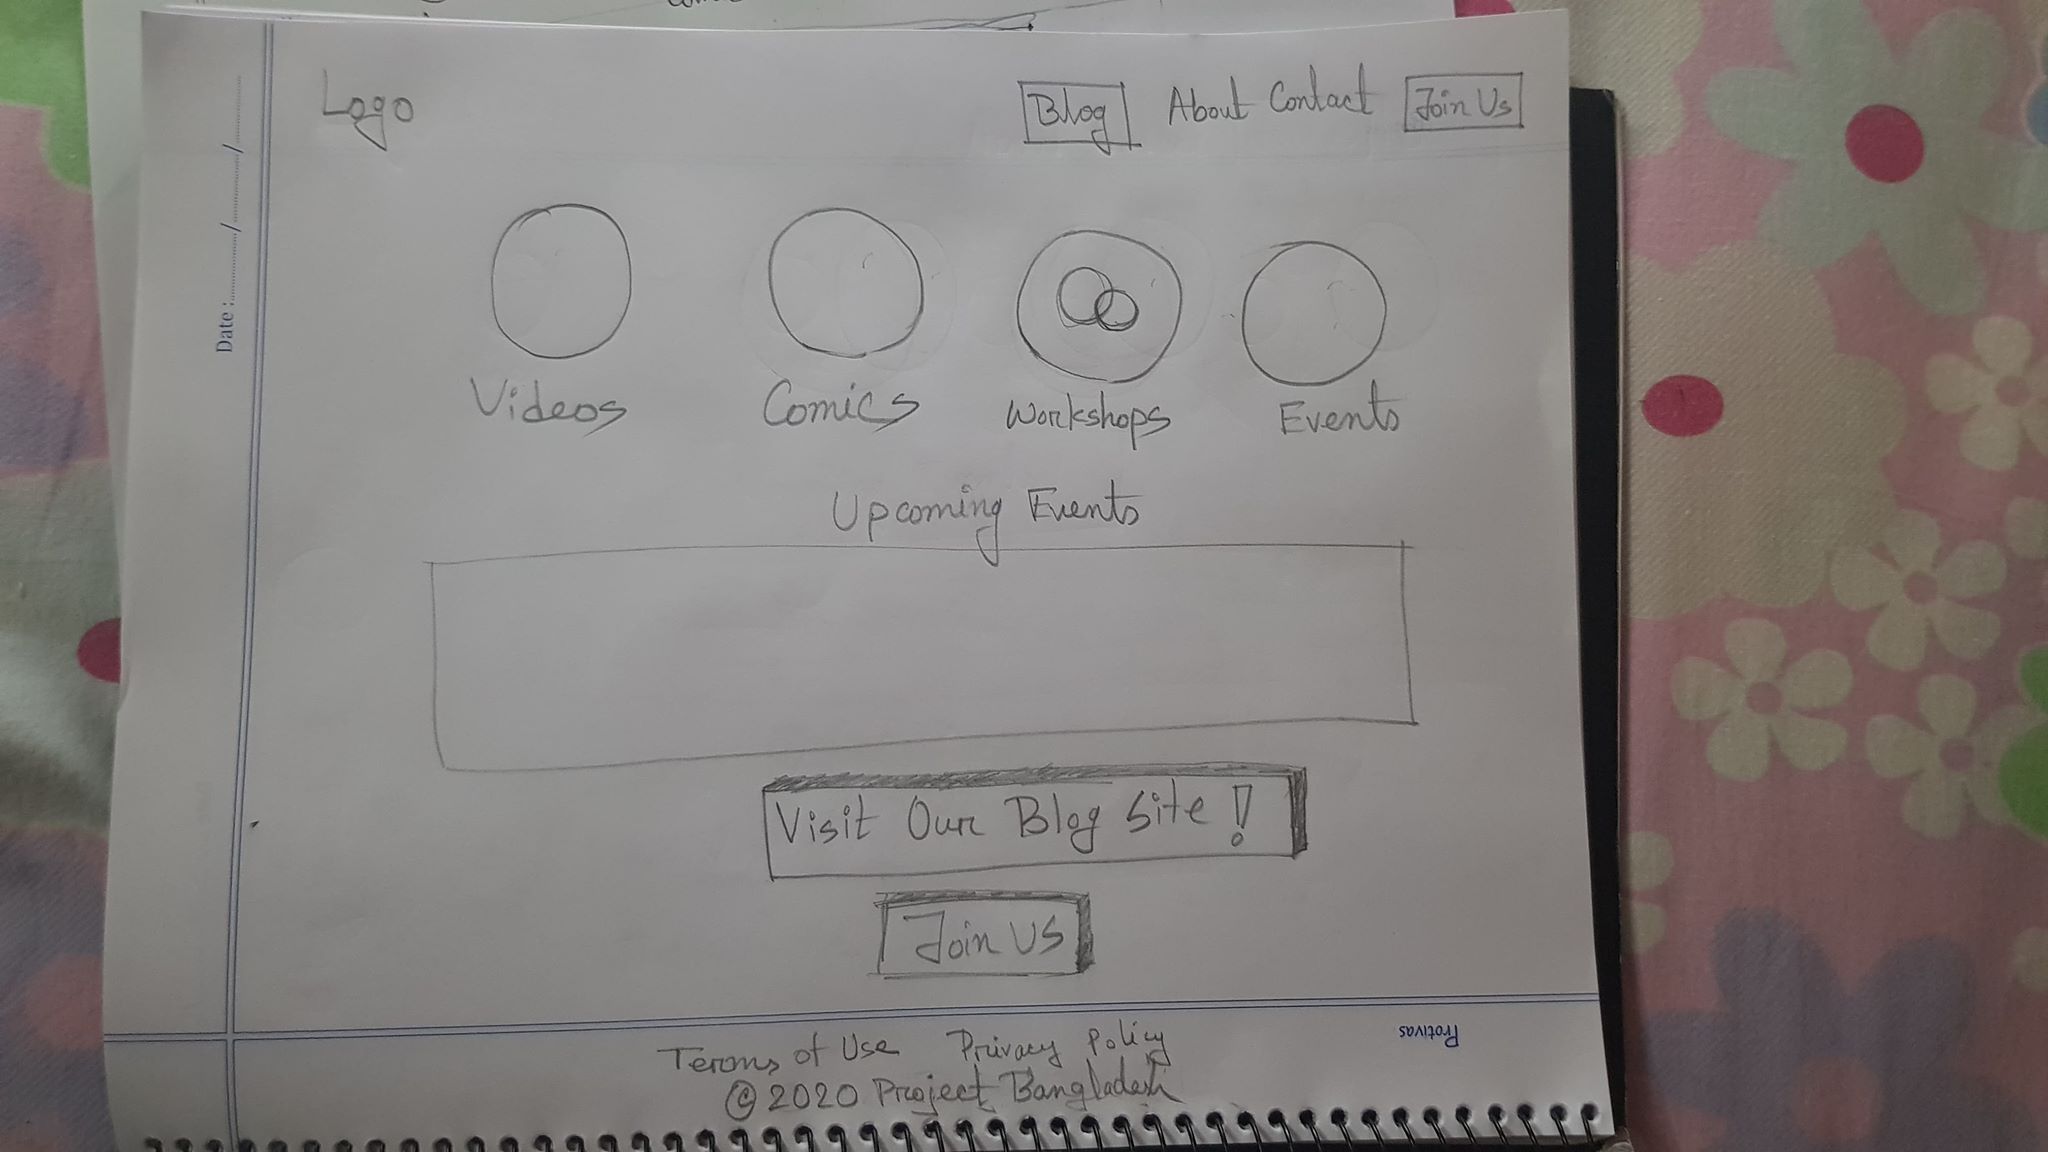 Logo
Blog About Contact Join Us
Videos Comics Workshops Events
Upcoming Events
Visit Our Blog Site!
Join US
Terms of Use Privacy Policy
© 2020 Project Bangladesh
Date :............/............/............
Protivas